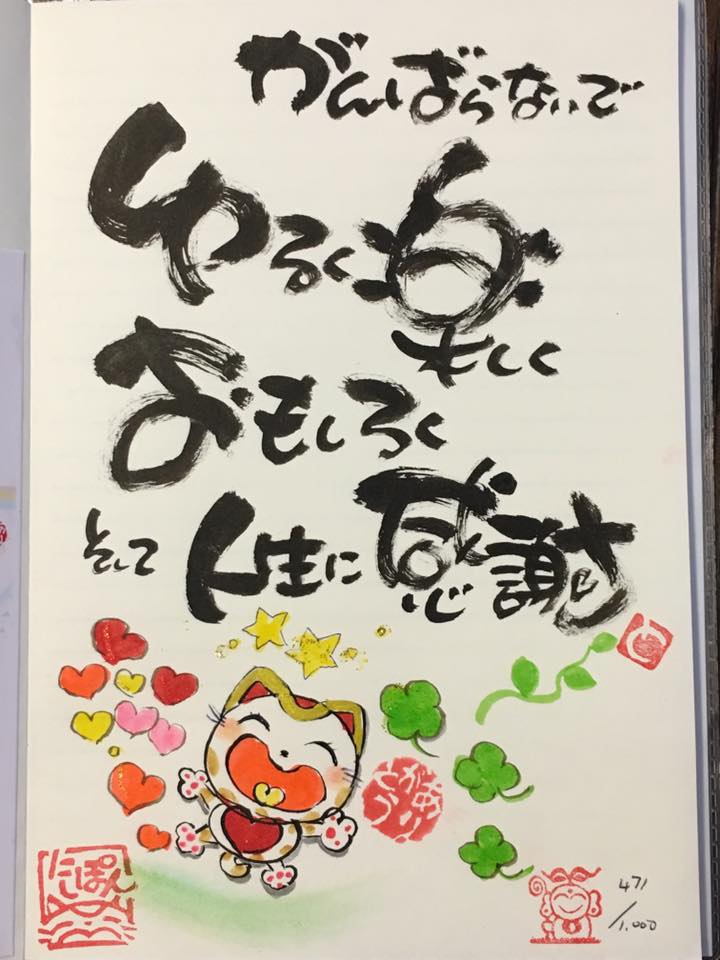 がんばらないで
ゆるく楽しく
おもしろく
そして人生に感謝
にっぽん
471/1.000